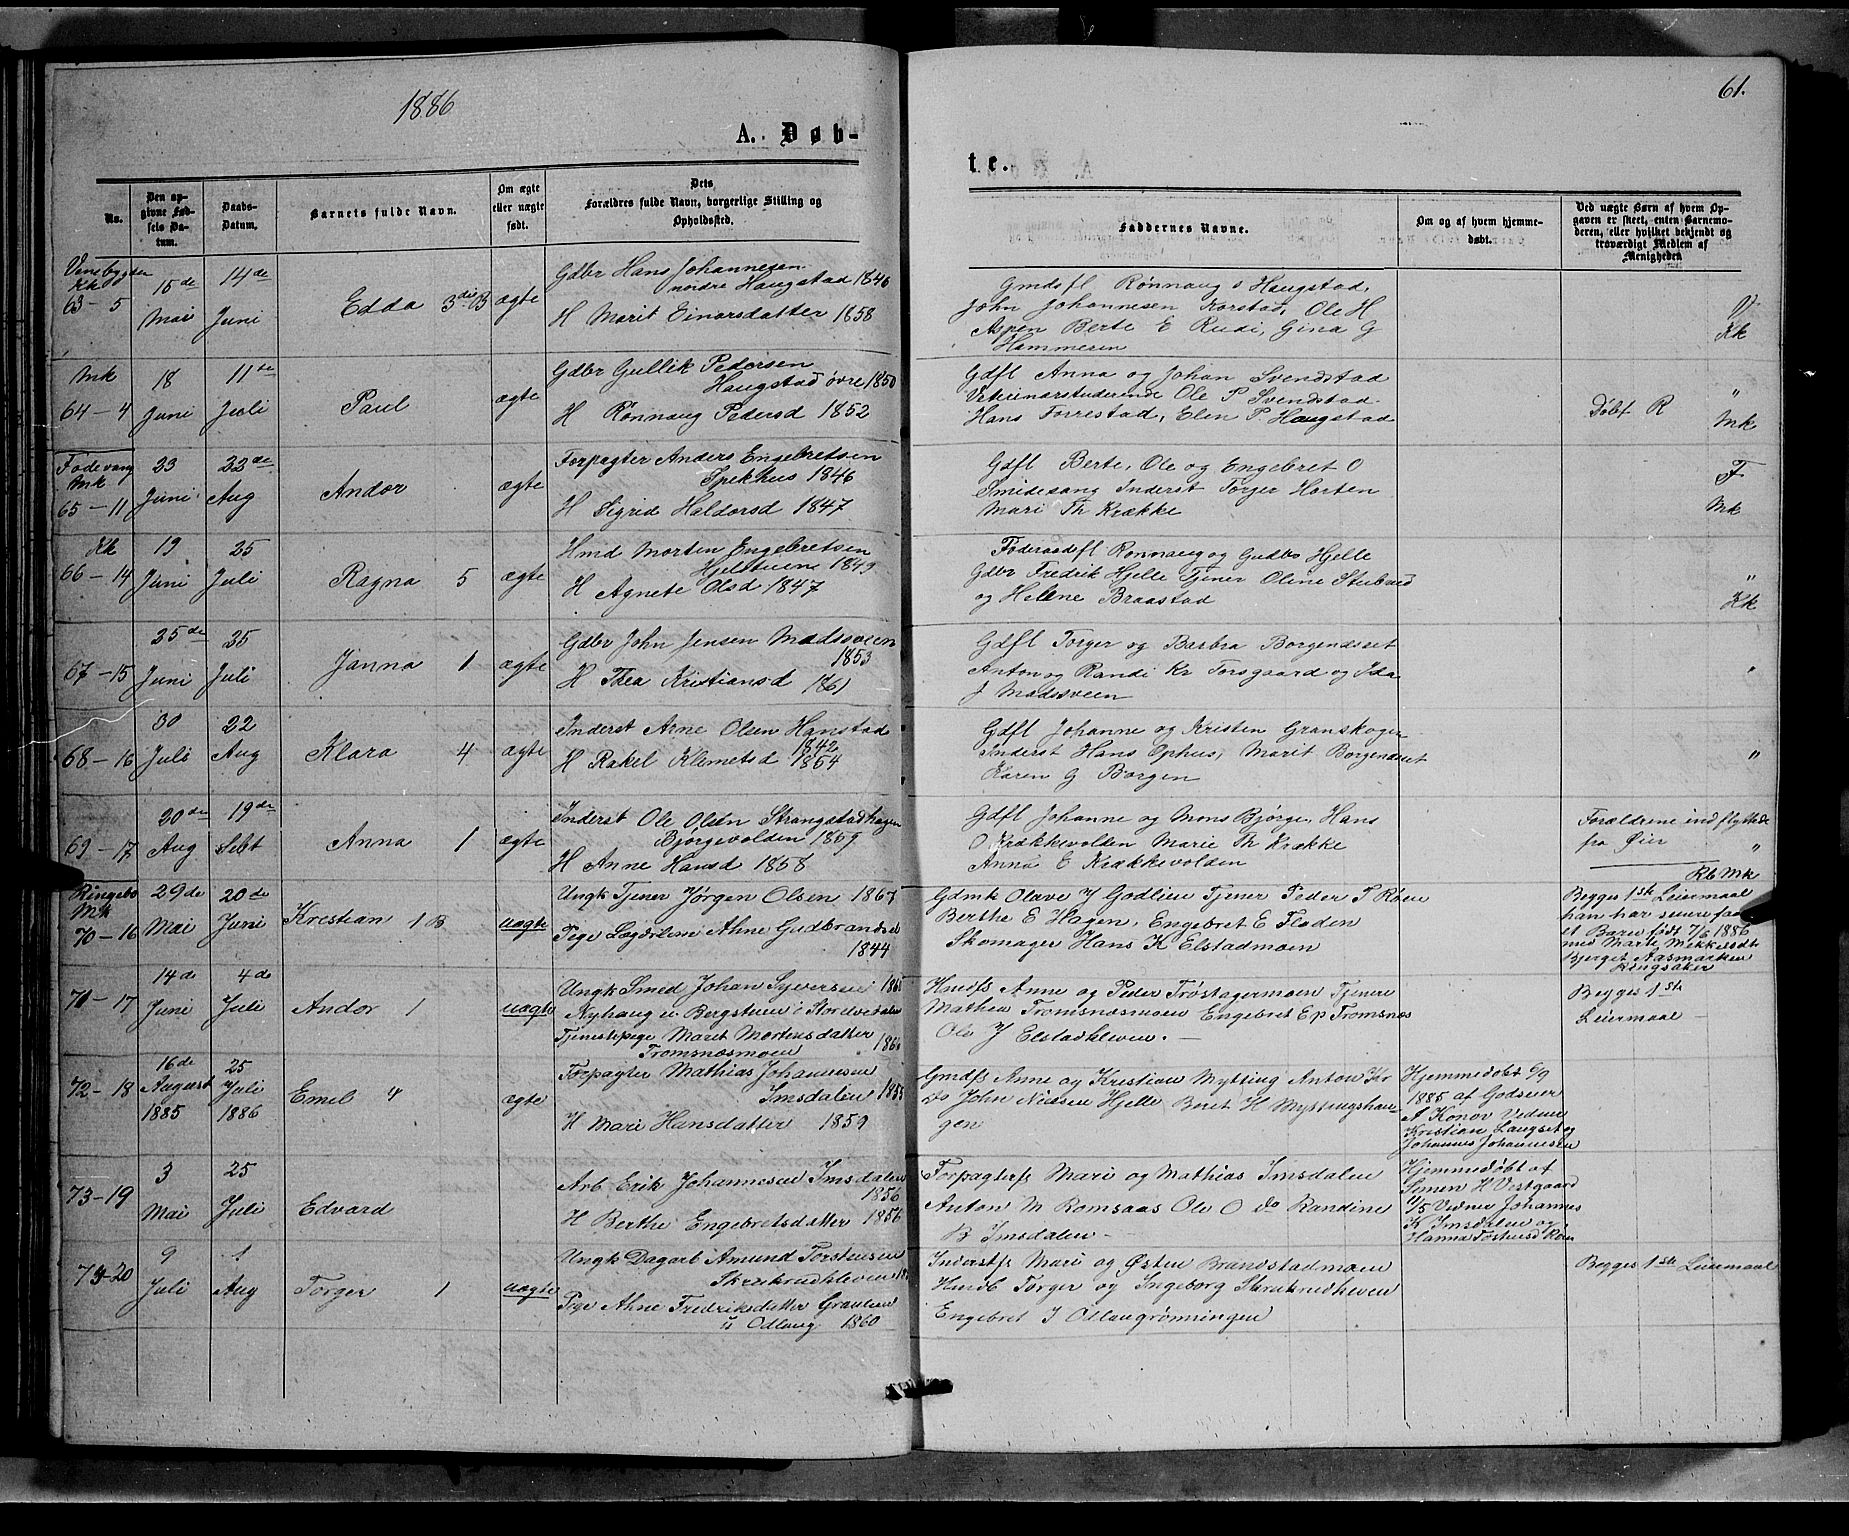 1886
61.
A. Døb-
te.
No.
Den op-
givne Fød-
sels Da-
tum.
Daabs-
Datum.
Barnets fulde Navn.
Om ægte
eller uægte
født.
Dets
Forældres fulde Navn, borgerlige Stilling og
Opholdssted.
Faddernes Navne.
Om og af hvem hjemme-
døbt.
Ved uægte Børn af hvem Op-
gaven er skeet, enten Barnemo-
deren, eller hvilket bekjendt og
troværdigt Medlem af
Menigheden
Venebygden
Kk
63-5
15de
Mai
14de
Juni
Edda 3die B
ægte
Gdbr Hans Johannesen
nordre Haugstad 1846
H Marit Einarsdatter 1858
Gmdsfl Rønnaug s Haugstad,
John Johannesen Korstad, Ole H
Aspen Berte E Rudi, Gina G
Hammeren
Kk
Mk
64-4
18
Juni
11te
Juli
Paul
ægte
Gdbr Gullik Pedersen
Haugstad øvre 1850
H Rønnaug Pedersd 1852
Gdfl Anna og Johan Svendstad
Vetrinærstuderende Ole P Svendstad
Hans Forrestad, Elen P. Haugstad
Døbt R
"
Mk
Fodevang
Mk
65-11
23
Juni
22de
Aug
Andor
ægte
Forpagter Anders Engebretsen
Spekhus 1846
H Sigrid Haldorsd 1847
Gdfl Berte, Ole og Engebret O
Smidesang Inderst Torger Horten
Mari Th Krække
F
Mk
Kk
66-14
19
Juni
25
Juli
Ragna 5
ægte
Hmd Morten Engebretsen
Hjelstuene 1849
H Agnete Olsd 1847
Føderaadsfl Rønnaug og Gudbr Hjelle
Gdbr Fredrik Hjelle Tjener Oline Stubaed
og Hellene Braastad
"
Kk
67-15
25de
Juni
25
Juli
Janna 1
ægte
Gdbr John Jensen Madssveen
1853
H Thea Kristiansd 1861
Gdfl Torger og Barbra Borgendset
Anton og Randi Kr Forsgaard og Ida
J Madssveen
"
68-16
30
Juli
22
Aug
Klara 4
ægte
Inderst Arne Olsen Hanstad
1842
H Rakel Klemetsd 1854
Gdfl Johanne og Kristen Granskogen
Inderst Hans Ophus, Marit Borgendset
Karen G Borgen
"
69-17
30de
Aug
19de
Sebt
Anna 1
ægte
Inderst Ole Olsen Strangstadhagen
Bjørgevolden 1859
H Anne Hansd 1858
Gdfl Johanne og Mons Bjørge, Hans
O Krækkevolden Marie Th Krække
Anna E Krækkevolden
Forældrene indflyttede
fra Øier "
Rb Mk
Ringebo
Mk
70-16
29de
Mai
20de
Juni
Krestian 1 B
uægte
Ungk Tjener Jørgen Olsen 1867
Pige Lægdslem Anne Gudbrandsd
1844
Gdmk Olave J Godlien Tjener Peder T Røen
Berthe E Hagen, Engebret E Floden
Skomager Hans K Elstadmoen
Begges 1ste Leiermaal
han har senere faaet
et Barn født 7/6 1886
med Marte Mikkelsdt
Bjerget Aasmarken
Ringsaker
71-17
14de
Juni
4de
Juli
Andor 1
uægte
Ungk Smed Johan Syversen
Nyhaugen Bergstuen i Stordvedalen
Tjenestepige Maret Mortensdatter
Tromsnæsmoen 1866
Hmdfs Anne og Peder Trøstagermoen Tjenere
Mathea Tromsnæsmoen Engebret Ep Tromsnæs
Ole J Elstadkleven. -
Begges 1ste
Leiermaal -
72-18
16de
August
1885
25
Juli
1886
Emel 4
ægte
Forpagter Mathias Johannesen
Imsdalen
H Mari Hansdatter 1859
Gmdfs Anne og Kristian Mytting Anton Kr
do John Nielsen Hjelle Beret H Myttingshau-
gen
Hjemmedøbt 6/9
1885 af Godseier
A Konov Vedner
Kristian Laugset og
Johannes Johannesen
73-19
3
Mai
25
Juli
Edvard
ægte
Arb Erik Johannesen Imsdalen
1856
H Berthe Engebretsdatter 1856
Forpagterfs Mari og Mathias Imsdalen
Anton M Romsaas Ole O do Randine
B Imsdalen -
Hjemmedøbt af
Simen H Vestgaard
11/5 Vedner Johannes
K Imsdalen og
74-20
9
Juli
1
Aug
Torger 1
uægte
Ungk Dagarb Amund Torstensen
Skrukrudkleven
Pige Anne Fredriksdatter Graulien
u Odlaug 1860
Inderstfs Mari og Østen Brandstadmoen
Husmb Torger og Ingeborg Skrukrudkleven
Engebret J Odlaugrønningen
Begges 1ste Leiermaal